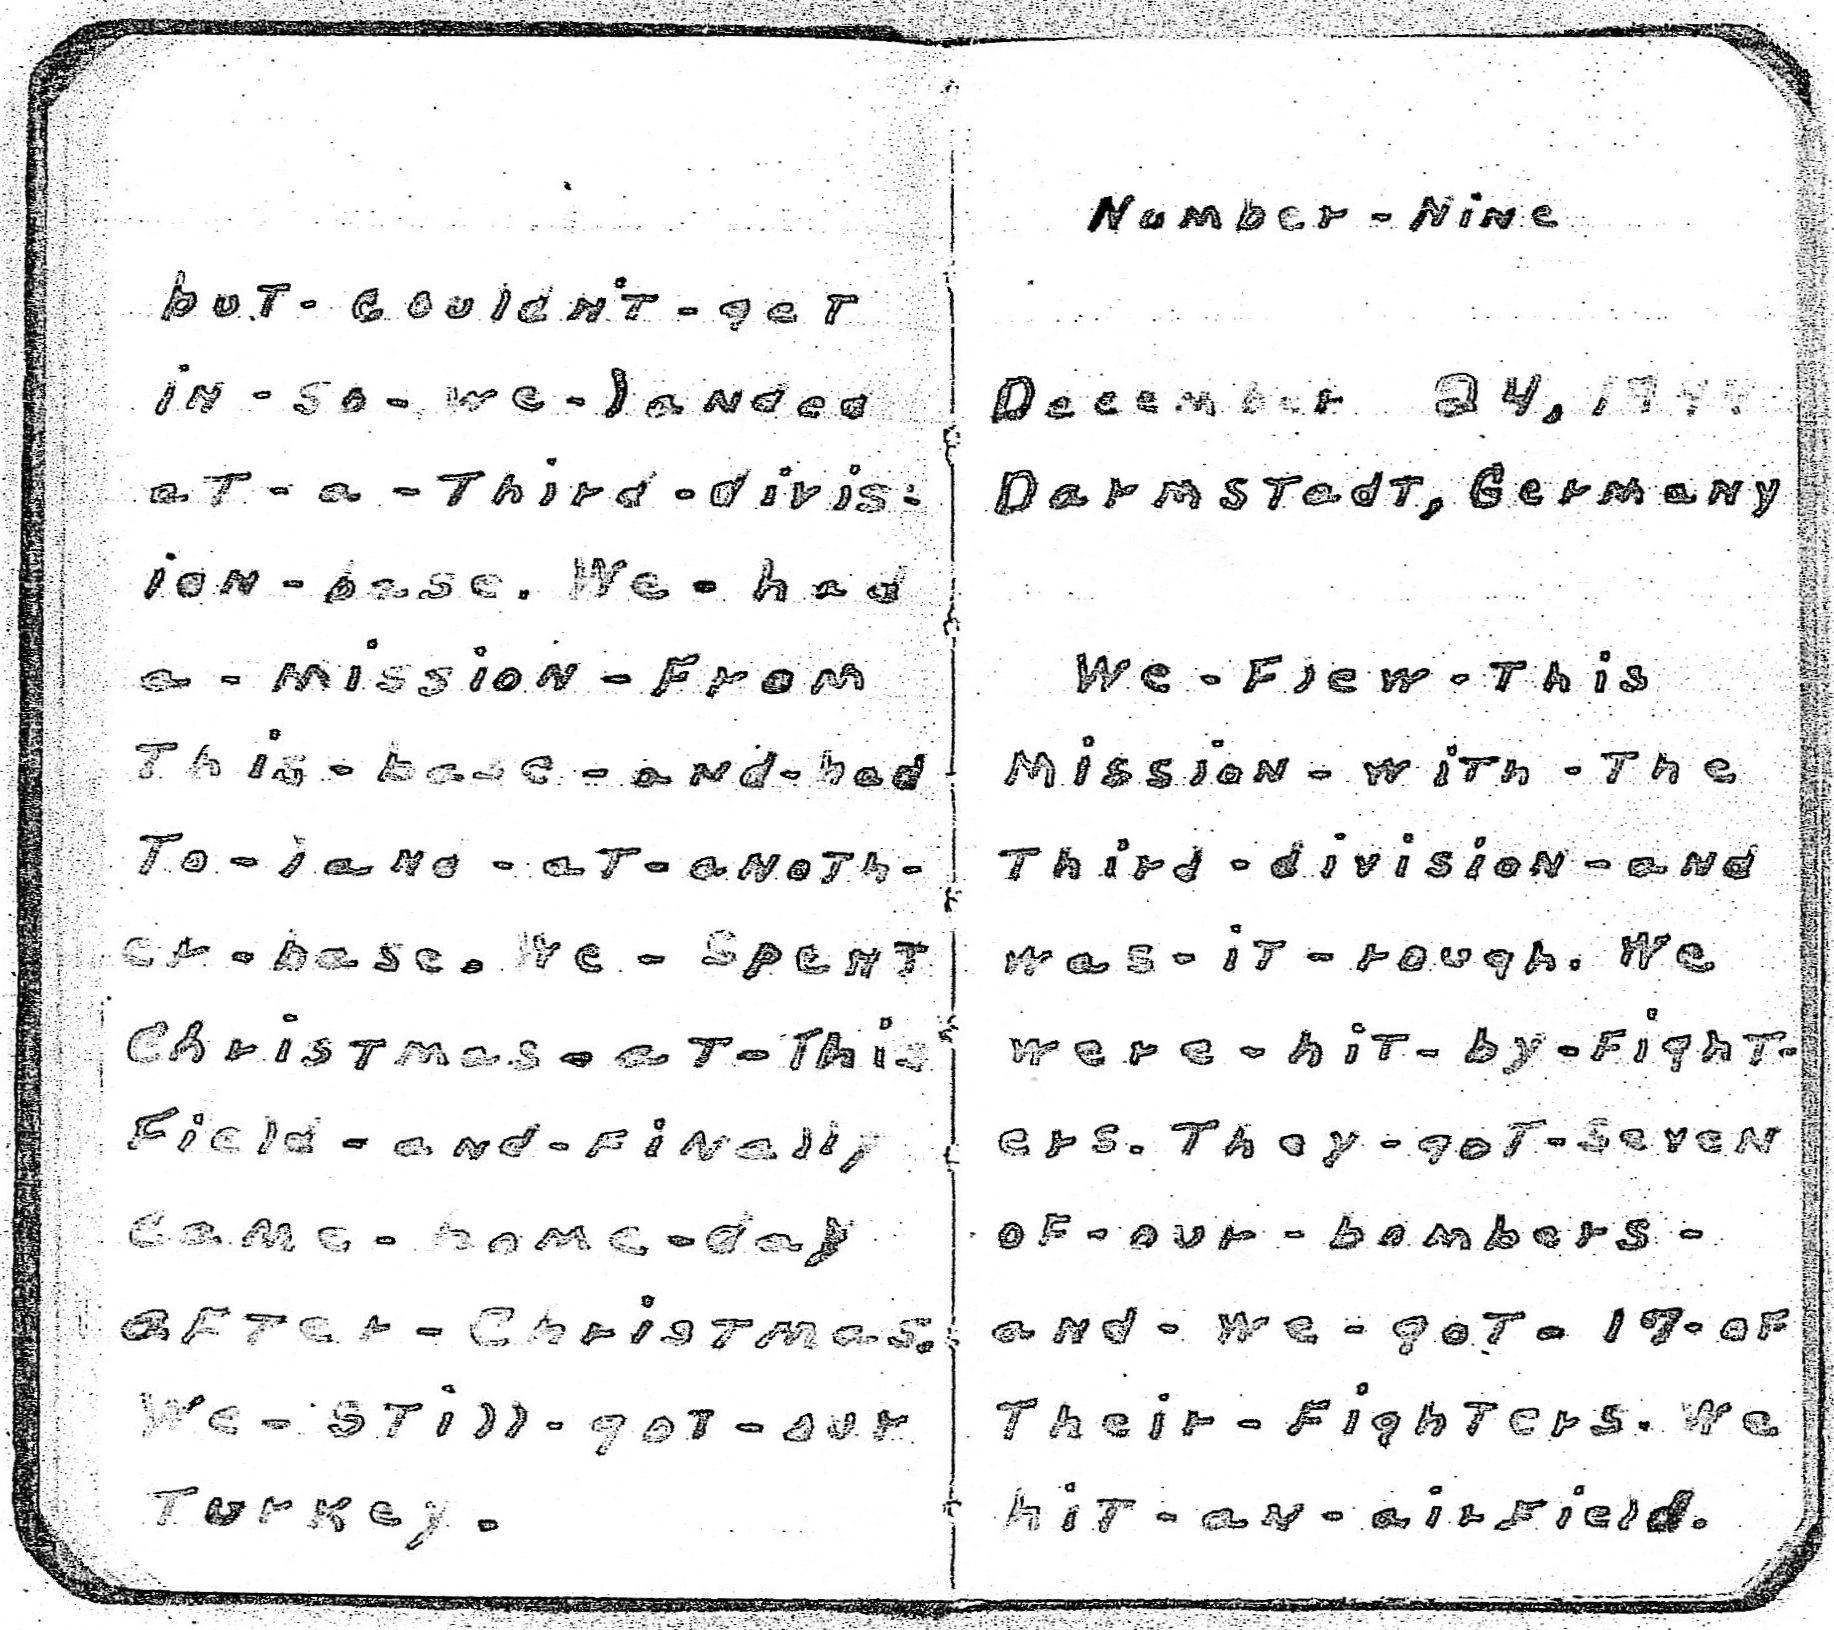 but-couldn't-get
in-so-we-landed
at-a-Third-divis-
ion-base. We-had
a-mission-From
This-base-and-had
To-land-at-anoth-
er-base. We-Spent
Christmas-at-This
Field-and-Finally
came-home-day
after-Christmas.
We-still-got-our
Turkey.
Number-Nine
December 24, 1944
Darmstadt, Germany
We-Flew-This
Mission-with-The
Third-division-and
was-it-rough. We
were-hit-by-Fight-
ers. They-got-seven
of-our-bombers-
and-we-got-17-of
Their-Fighters. We
hit-an-airfield.